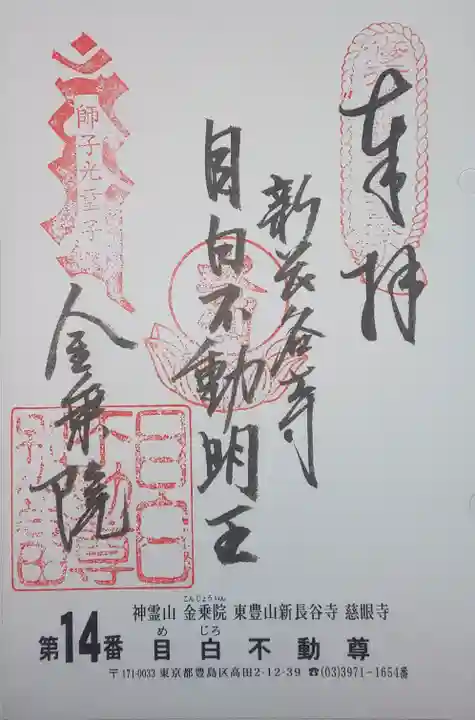 奉拝
新長谷寺
目白不動明王
師子光童子
金乗院
神霊山 金乗院 東豊山新長谷寺 慈眼寺
こんじょういん
第14番 目白不動尊
め じろ
〒171-0033 東京都豊島区高田2-12-39 ☎(03)3971-1654番